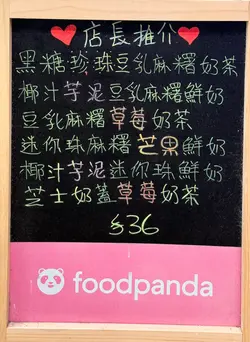 店長推介
黑糖珍珠豆乳麻糬奶茶
椰汁芋泥豆乳麻糬鮮奶
豆乳麻糬草莓奶茶
迷你珠麻糬芒果鮮奶
椰汁芋泥迷你珠鮮奶
芝士奶蓋草莓奶茶
$36
foodpanda